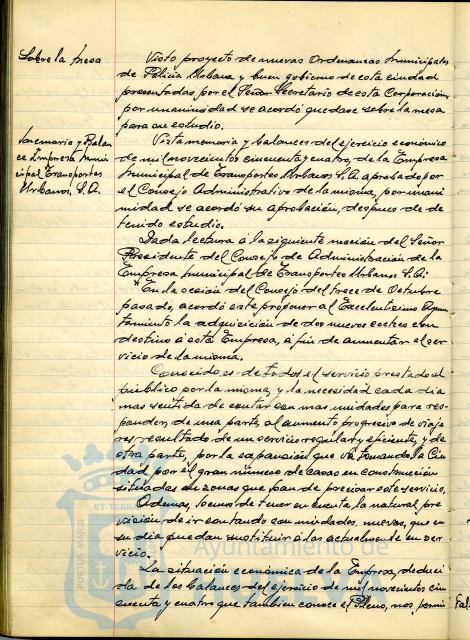 Sobre la mesa
Visto proyecto de nuevas Ordenanzas Municipales
de Policia Urbana y buen gobierno de esta ciudad
presentadas por el Señor Secretario de esta Corporación,
por unanimidad se acordó quedase sobre la mesa
para su estudio.
Memoria y Balan
ce Empresa Muni
cipal Transportes
Urbanos, S.A.
Vista memoria y balances del ejercicio económico
de mil novecientos cincuenta y cuatro, de la Empresa
Municipal de Transportes Urbanos S.A. aprobado por
el Consejo Administrativo de la misma, por unani
midad se acordó su aprobación, despues de de
tenido estudio.
Dada lectura á la siguiente moción del Señor
Presidente del Consejo de Administración de la
Empresa Municipal de Transportes Urbanos S.A:
"En la sesión del Consejo del trece de Octubre
pasado, acordó este proponer al Excelentisimo Ayun
tamiento la adquisición de dos nuevos coches con
destino á esta Empresa, á fin de aumentar el ser
vicio de la misma.
Conocido es de todos el servicio prestado al
público por la misma, y la necesidad cada dia
mas sentida de contar con mas unidades para res-
ponder, de una parte, al aumento progresivo de viaje
ros, resultado de un servicio regular y eficiente, y de
otra parte, por la expansión que vá tomando la Ciu
dad, por el gran número de casas en construcción
situadas en zonas que han de precisar este servicio.
Ademas, hemos de tener en cuenta, la natural pre
visión de ir contando con unidades nuevas, que en
su dia puedan sustituir á las actualmente en ser
vicio.
La situación económica de la Empresa, deduci
da de los balances del ejercicio de mil novecientos cin
cuenta y cuatro que tambien conoce el Pleno, nos permi
Fal
ET TERRAE
PORTUS MARIS
Ayuntamiento de